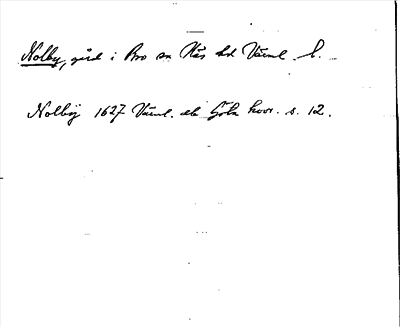 Nolby, gård i Bro sn Näs hd Värml. l.
Nolbÿ 1627 Värml. o. Göta hovr. s. 12.